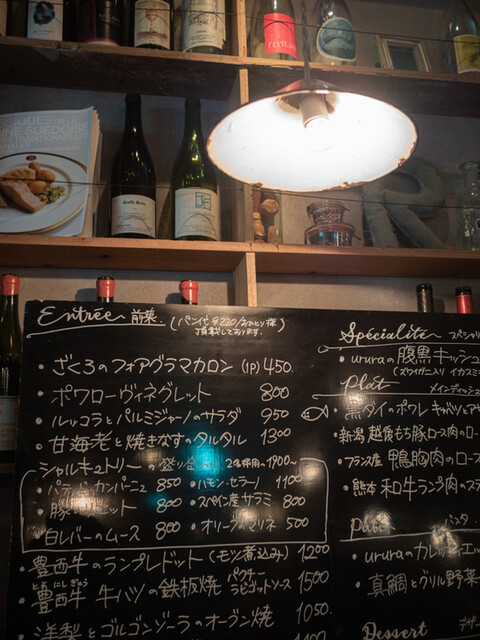 NE SUEDOISE
Entrée 前菜
(パン代 ¥220/おひとり様)
頂戴しております。
・ざくろのフォアグラマカロン (1P) 450.
・ポワローヴィネグレット 800
・ルッコラとパルミジャーノのサラダ 950
・甘海老と焼きなすのタルタル 1300
シャルキュトリーの盛り合 2名様用の1900〜
・パテドカンパーニュ 850
・豚 ット 800
・白レバーのムース 800
・ハモン・セラーノ 1100
・スペイン産サラミ 800
・オリーブのマリネ 500
・豊西牛のランプレドット(モツ煮込み) 1200
・豊西牛 牛ハツの鉄板焼 パクチーラビゴットソース 1500
・洋梨とゴルゴンゾーラのオーブン焼 1050.
Spécialité スペシャリ
・ururaの腹黒キッシュ
(ズワイガニ入り イカスミ
Plat メインディッシュ
・黒ダイのポワレ キャベツとアサ
・新潟 越後もち豚ロース肉のロー
・フランス産 鴨胸肉のロース
・熊本 和牛ランプ肉のス
パスタ
・ururaのカレッティエッ
・真鯛とグリル野菜
Dessert デザー